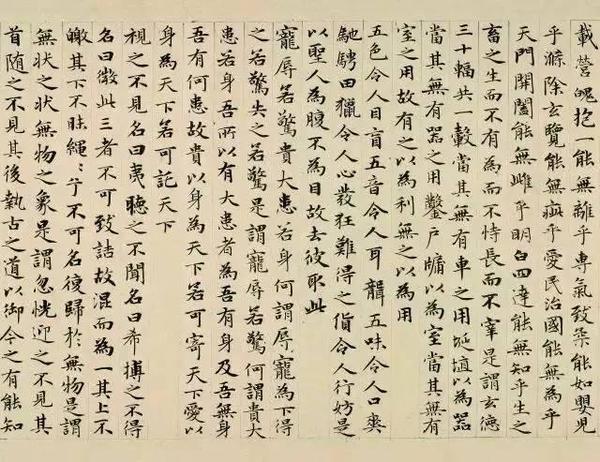 載營魄抱一能無離乎專氣致柔能如嬰兒
乎滌除玄覽能無疵乎愛民治國能無為乎
天門開闔能無雌乎明白四達能無知乎生之
畜之生而不有為而不恃長而不宰是謂玄德
三十輻共一轂當其無有車之用埏埴以為器
當其無有器之用鑿戶牖以為室當其無有
室之用故有之以為利無之以為用
五色令人目盲五音令人耳聾五味令人口爽
馳騁田獵令人心發狂難得之貨令人行妨是
以聖人為腹不為目故去彼取此
寵辱若驚貴大患若身何謂辱寵為下得
之若驚失之若驚是謂寵辱若驚何謂貴大
患若身吾所以有大患者為吾有身及吾無身
吾有何患故貴以身為天下若可寄天下愛以
身為天下若可託天下
視之不見名曰夷聽之不聞名曰希搏之不得
名曰微此三者不可致詰故混而為一其上不
皦其下不昧繩〻乎不可名復歸於無物是謂
無狀之狀無物之象是謂忽恍迎之不見其
首隨之不見其後執古之道以御今之有能知